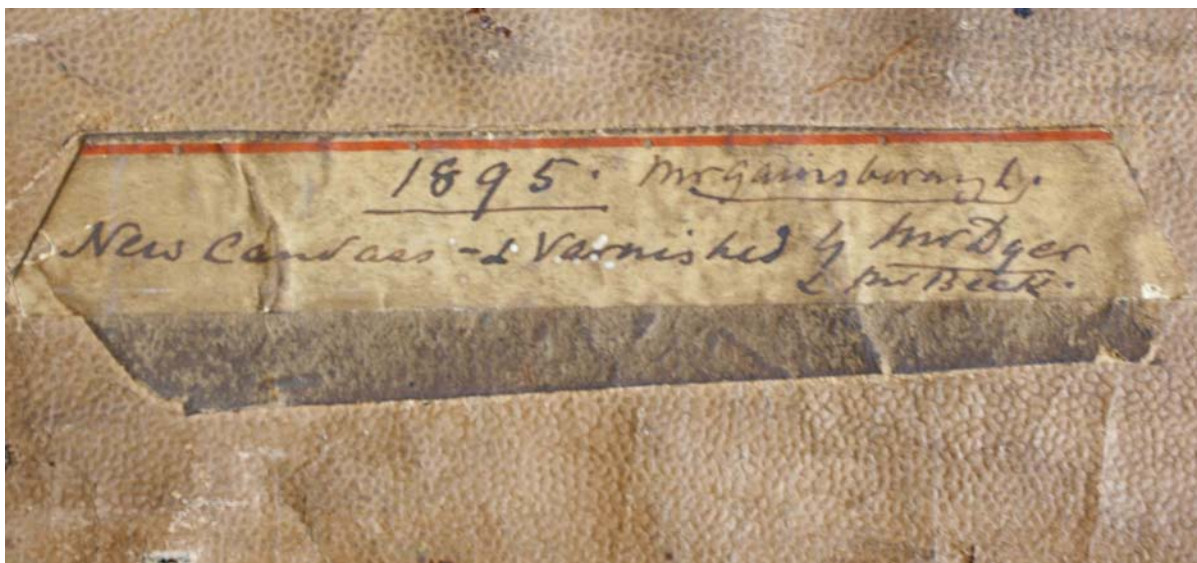 1895. Mr Gainsborough.
New Canvass - & Varnished by Mr Dyer
& Mr Beck.